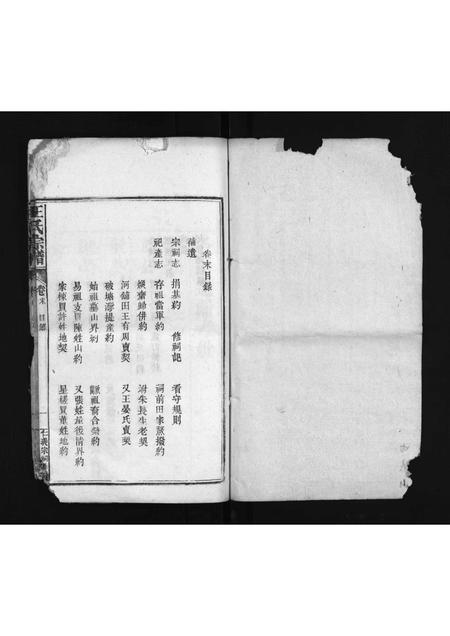 卷末目錄
補遺
宗祠志 捐基約 修祠記 看守規則
祀產志 存祖當軍約 祠前田家眾撥約
娛齋歸併約 附朱長生老契
河舖田王有周賣契 又王晏氏賣契
破塘海提產約
始祖墓山界約 觀祖斎合墳約
易祖支買陳姓山約 又張姓屋後清界約
朱棟買許姓地契 星槎買董姓地約
王氏宗譜 卷末 目錄